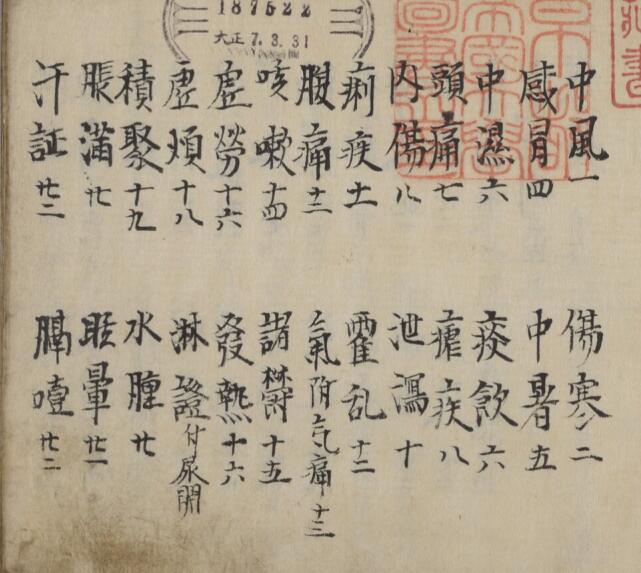 187522
大正 7.3.31
中風一 傷寒二
感冒四 中暑五
中濕六 痰飲六
頭痛七 瘧疾八
内傷八 泄瀉十
痢疾十一 霍乱十二
腹痛十二 氣附气痛十三
咳嗽十四 諸欝十五
虚勞十六 發熱十六
虚煩十八 淋證付尿閉
積聚十九 水腫廿
脹滿廿 眩暈廿一
汗証廿二 膈噎廿二